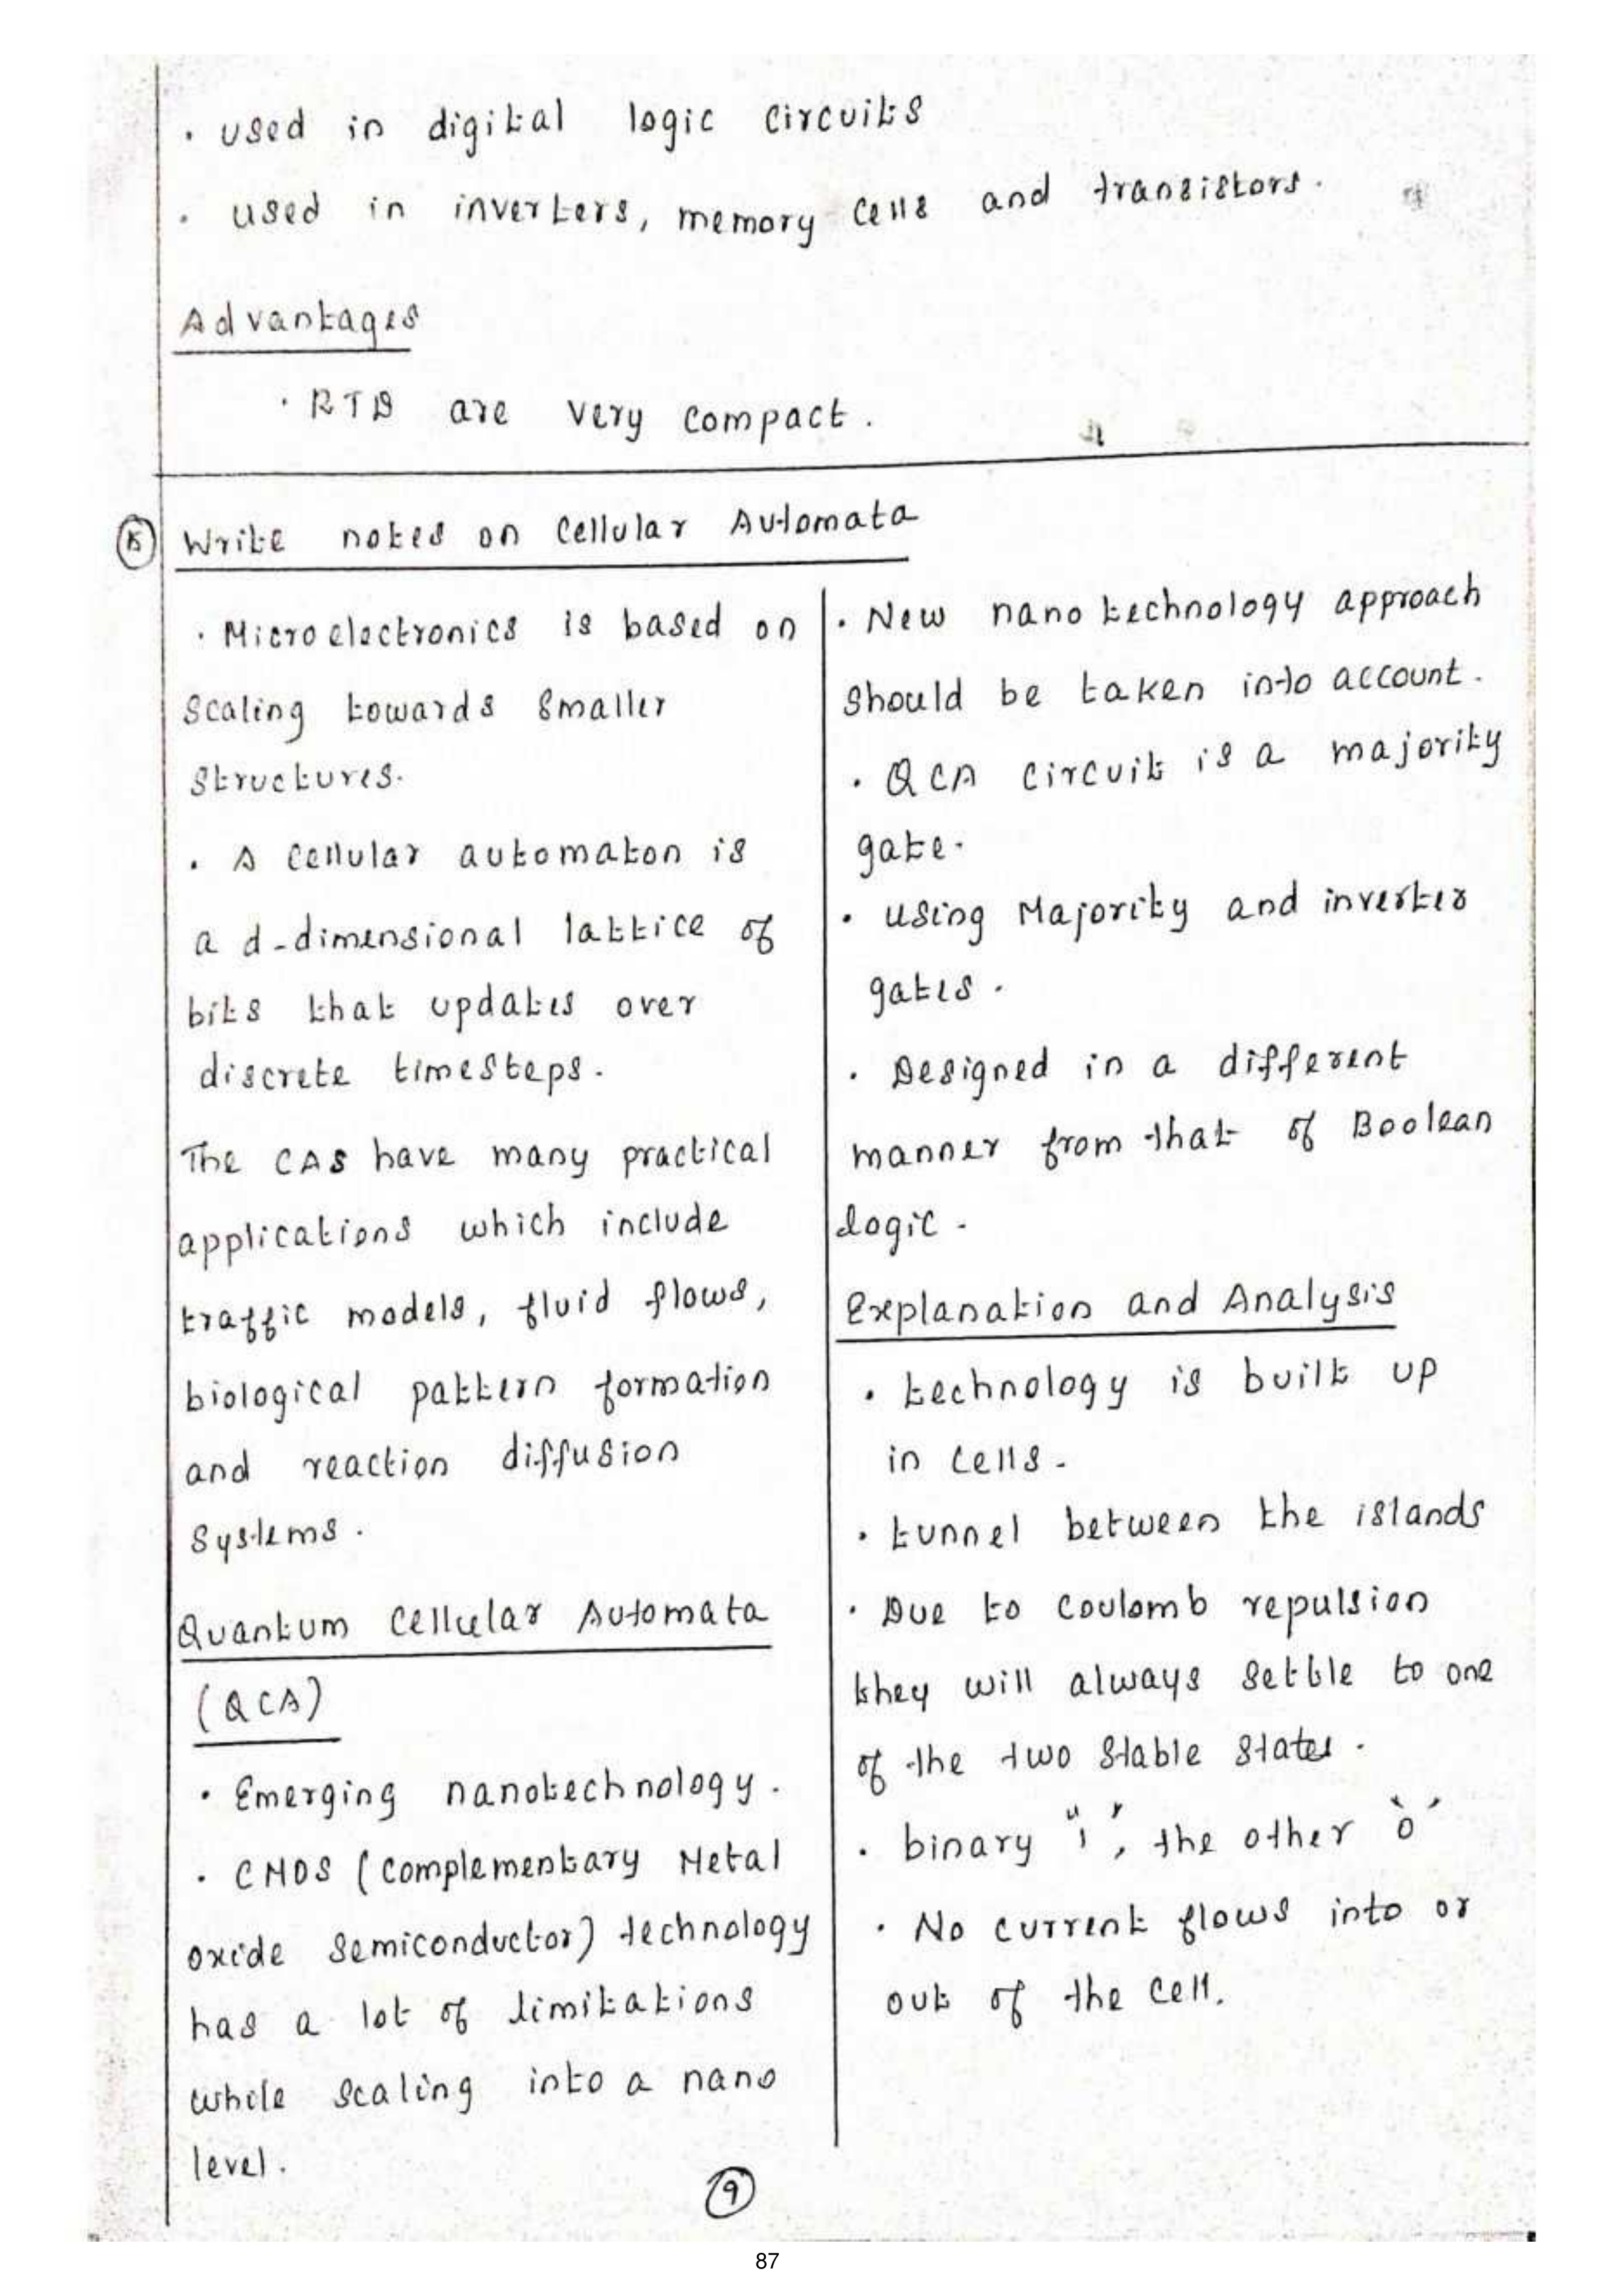 · used in digital logic circuits
· used in inverters, memory cells and transistors.
Advantages
· RTD are very compact.
Write notes on Cellular Automata
· Microelectronics is based on
scaling towards smaller
structures.
· A cellular automaton is
a d-dimensional lattice of
bits that updates over
discrete timesteps.
The CAS have many practical
applications which include
traffic models, fluid flows,
biological pattern formation
and reaction diffusion
systems.
Quantum Cellular Automata
(QCA)
· Emerging nanotechnology.
· CMOS (Complementary Metal
oxide semiconductor) technology
has a lot of limitations
while scaling into a nano
level.
· New nano technology approach
should be taken into account.
· QCA circuit is a majority
gate.
· using Majority and inverter
gates.
· Designed in a different
manner from that of Boolean
logic.
Explanation and Analysis
· technology is built up
in cells.
· tunnel between the islands
· Due to coulomb repulsion
they will always settle to one
of the two stable states.
· binary "1", the other '0'
· No current flows into or
out of the cell.
9
87